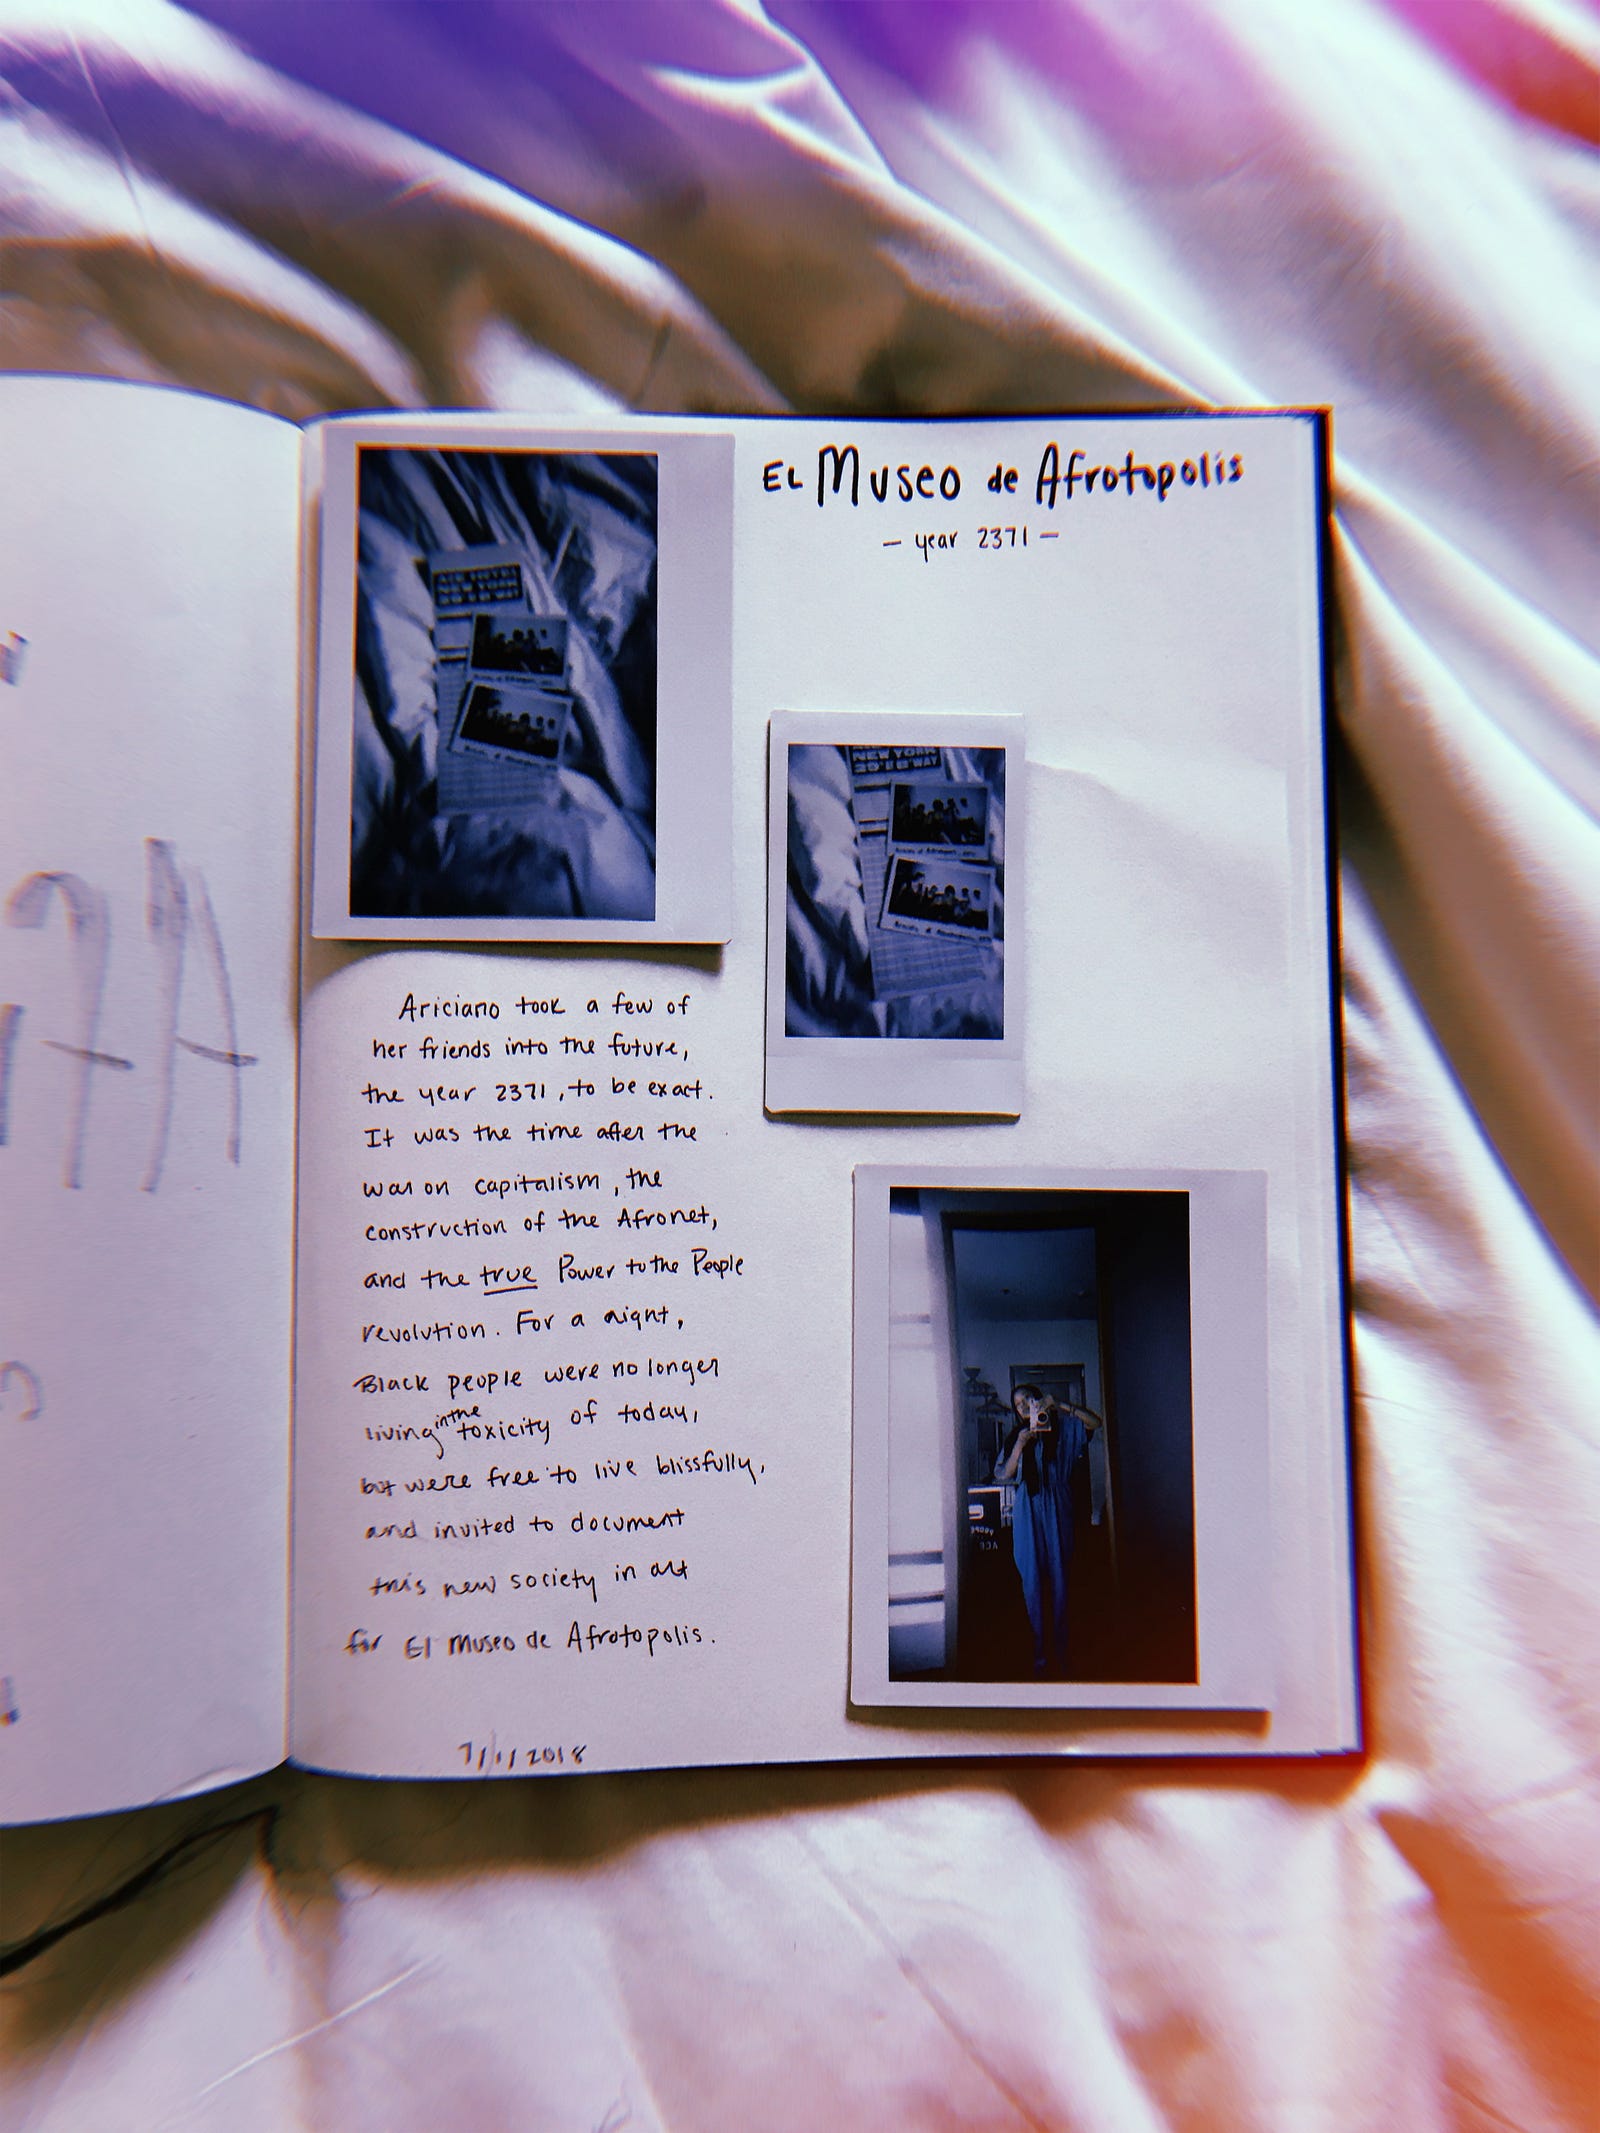 El Museo de Afrotopolis
— year 2371 —
NEW YORK
29TH B'WAY
Ariciano took a few of
her friends into the future,
the year 2371, to be exact.
It was the time after the
war on capitalism, the
construction of the Afronet,
and the true Power to the People
revolution. For a night,
Black people were no longer
living in the toxicity of today,
but were free to live blissfully,
and invited to document
this new society in art
for El Museo de Afrotopolis.
7/1/2018